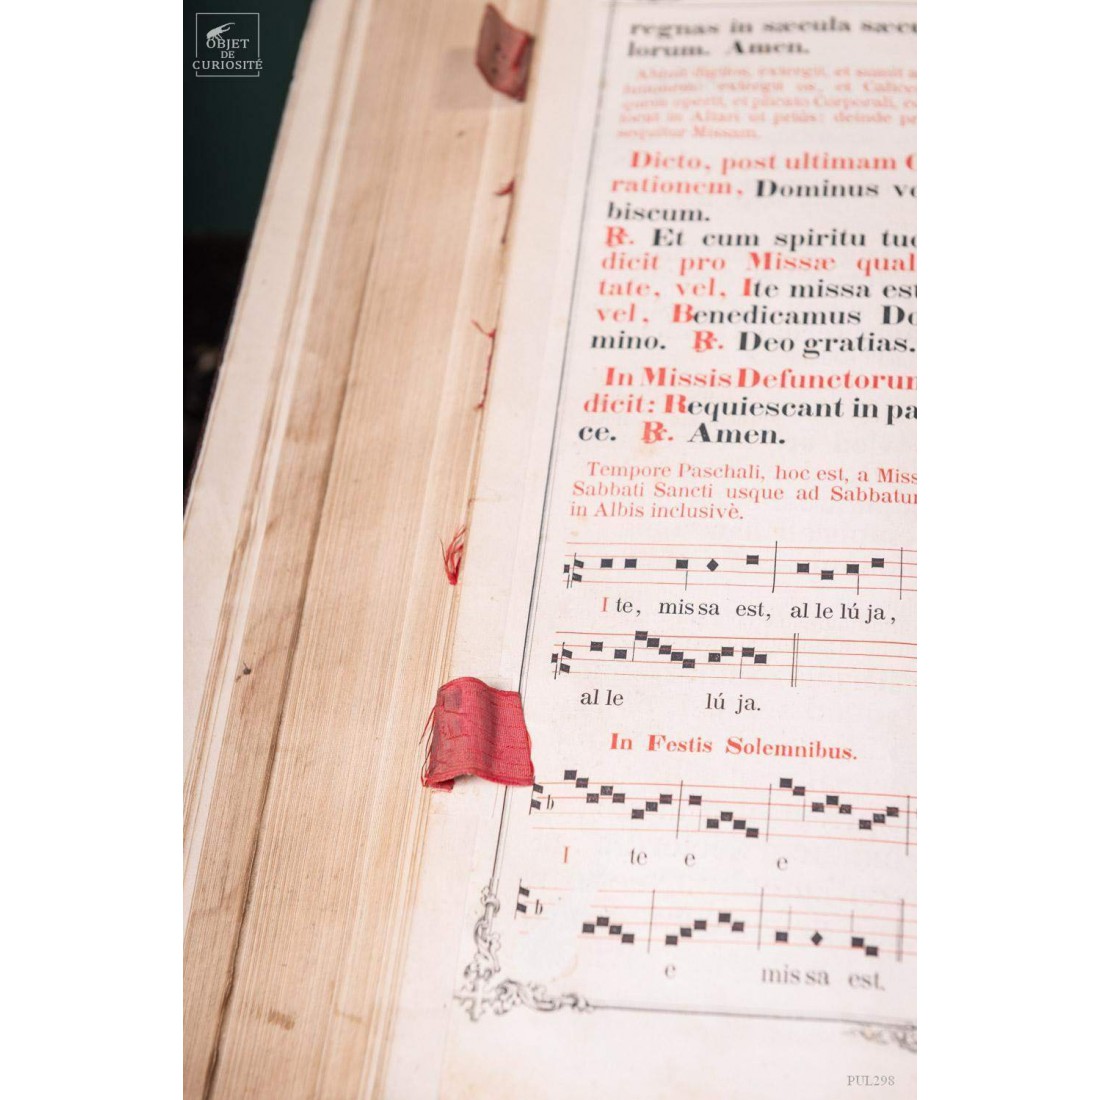 OBJET
DE
CURIOSITÉ
regnas in sæcula sæcu
lorum. Amen.
quem operit, et plicato Corporali,
locat in Altari ut priùs: deinde
sequitur Missam.
Dicto, post ultimam O
rationem, Dominus vo
biscum.
℟. Et cum spiritu tuo
dicit pro Missæ quali
tate, vel, Ite missa est
vel, Benedicamus Do
mino. ℟. Deo gratias.
In Missis Defunctorum
dicit: Requiescant in pa
ce. ℟. Amen.
Tempore Paschali, hoc est, a Miss
Sabbati Sancti usque ad Sabbatum
in Albis inclusivè.
I te, mis sa est, al le lú ja,
al le lú ja.
In Festis Solemnibus.
I te e e
e mis sa est.
PUL298